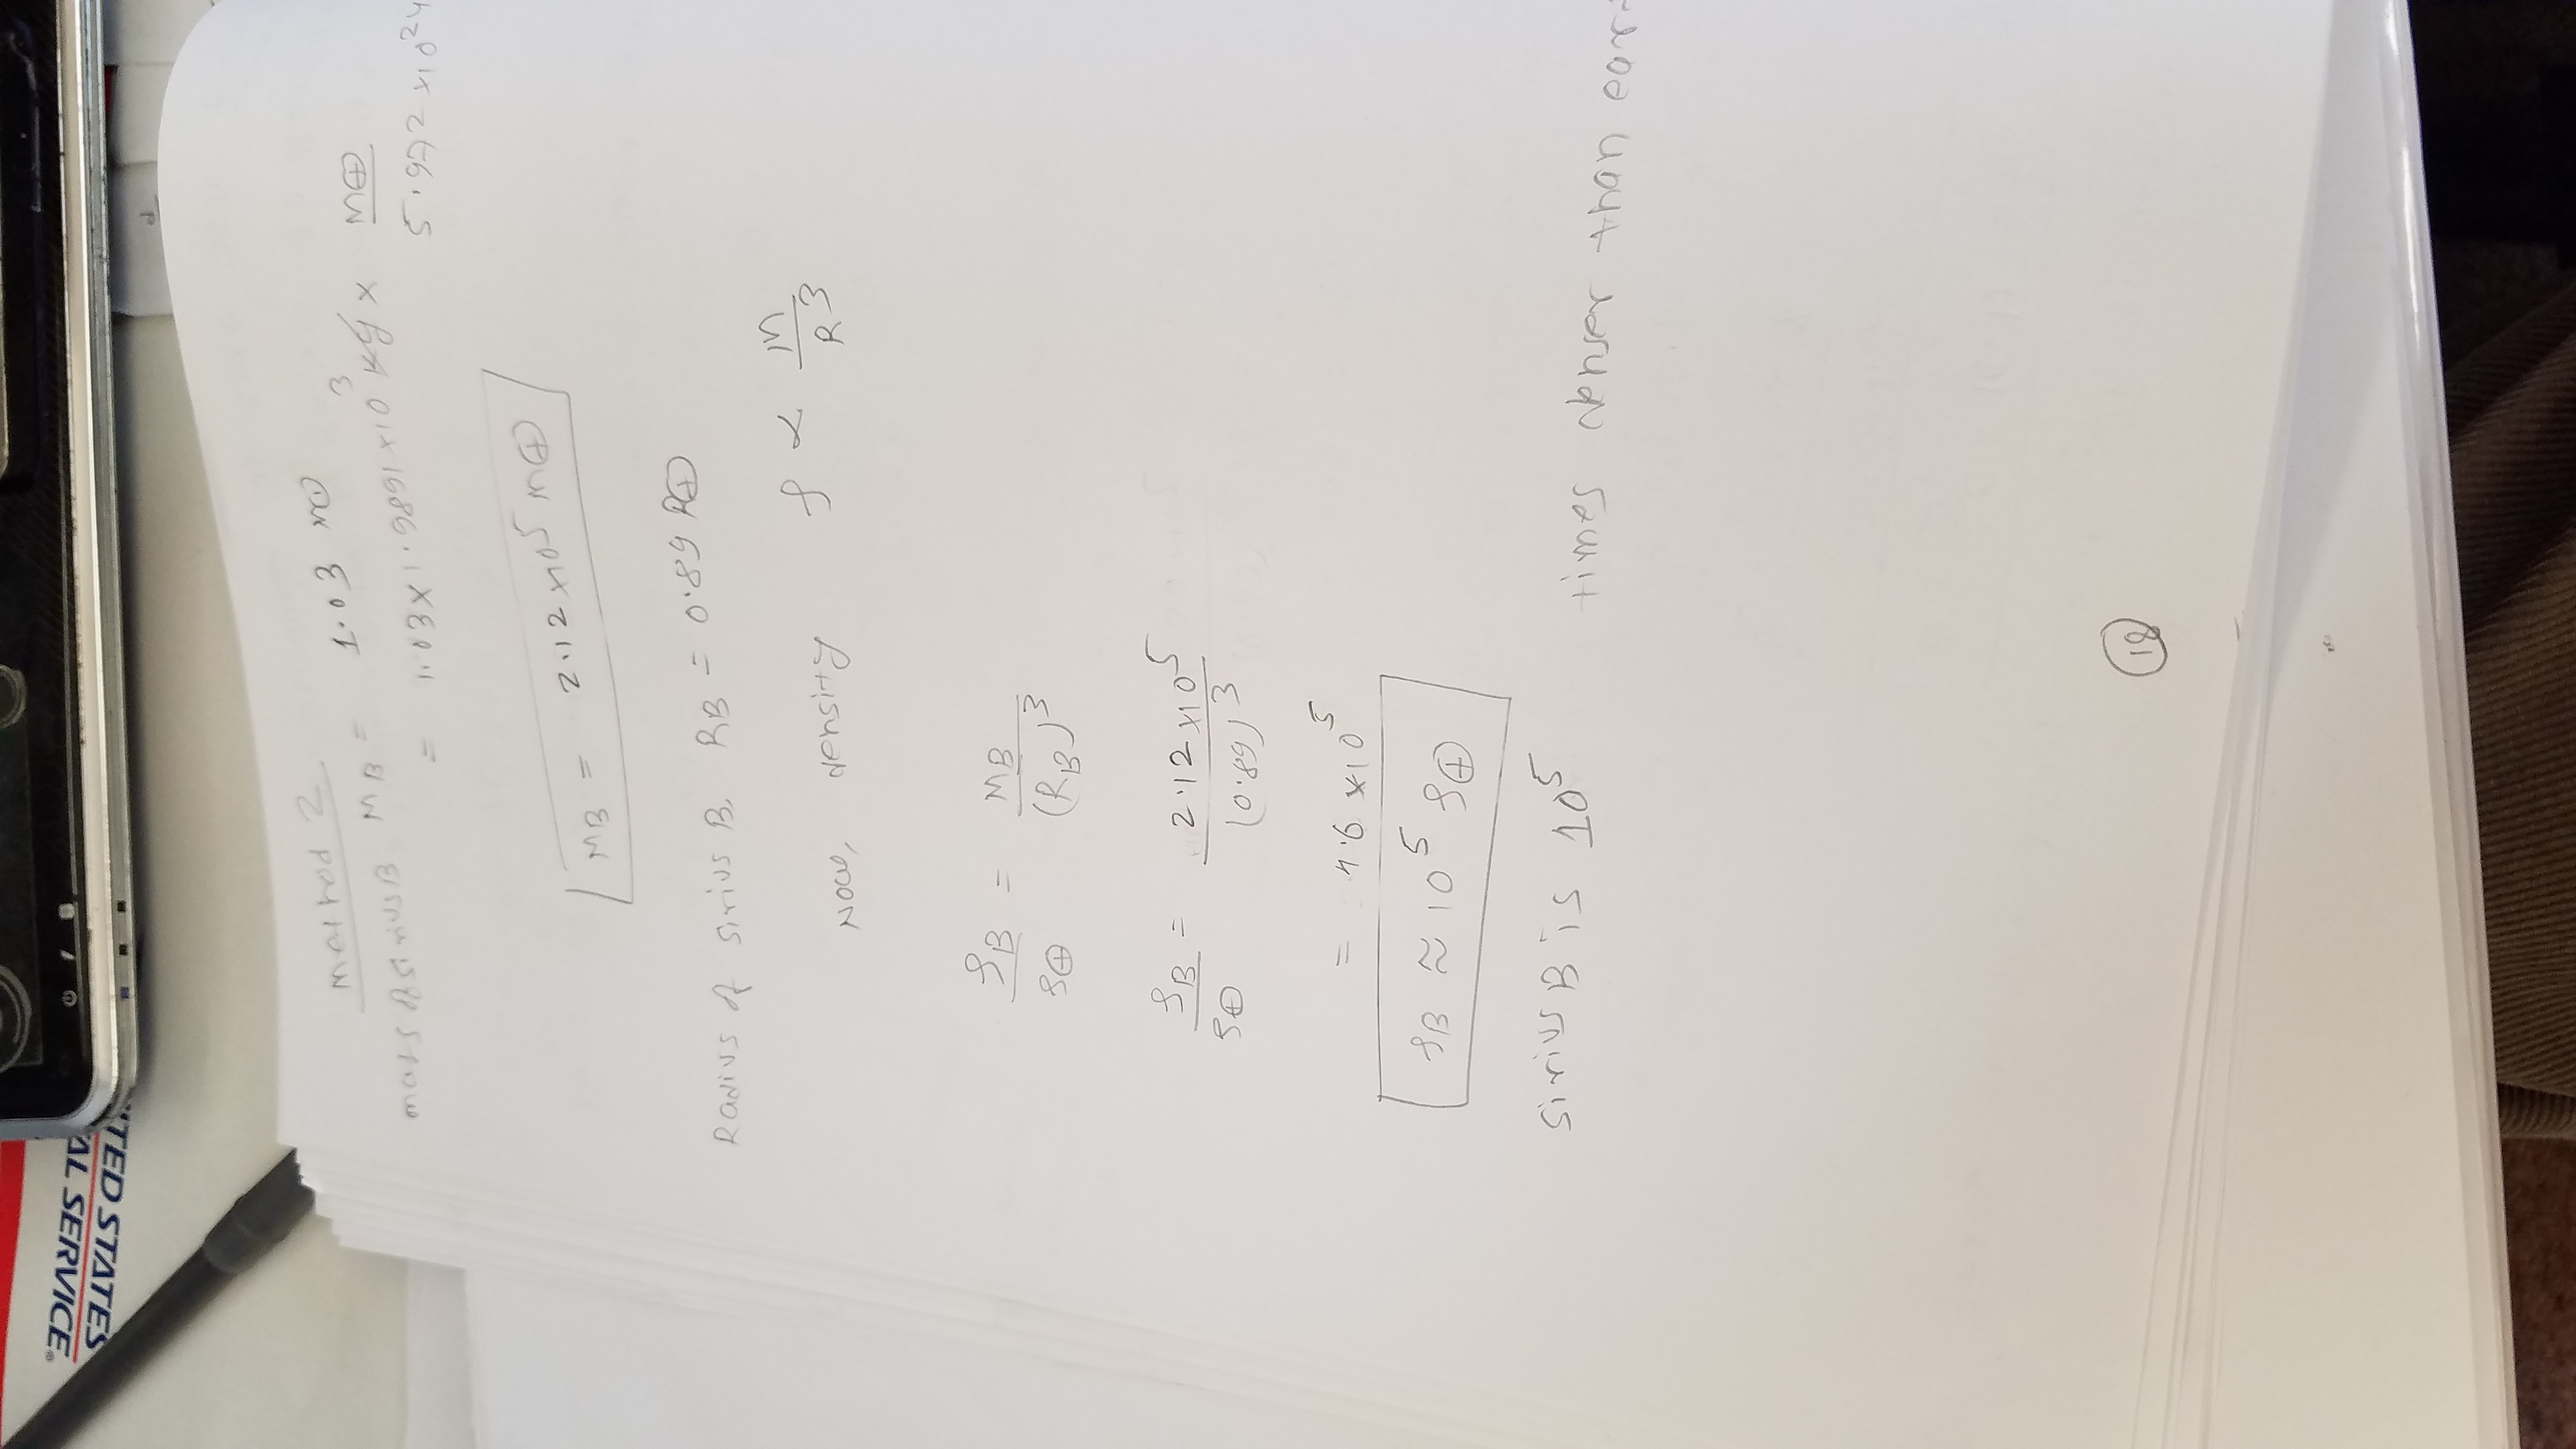 TED STATES
AL SERVICE®
Method 2
mass of sirius B, MB = 1.03 M⊙
= 1.03 × 1.9891 × 10^3 kg × M⊕ / 5.972 × 10^24
MB = 2.12 × 10^5 M⊕
Radius of sirius B, RB = 0.89 R⊕
Now, density ρ ∝ M / R^3
ρB / ρ⊕ = MB / (RB)^3
ρB / ρ⊕ = 2.12 × 10^5 / (0.89)^3
= 4.6 × 10^5
ρB ≈ 10^5 ρ⊕
sirius B is 10^5 times denser than ear
18